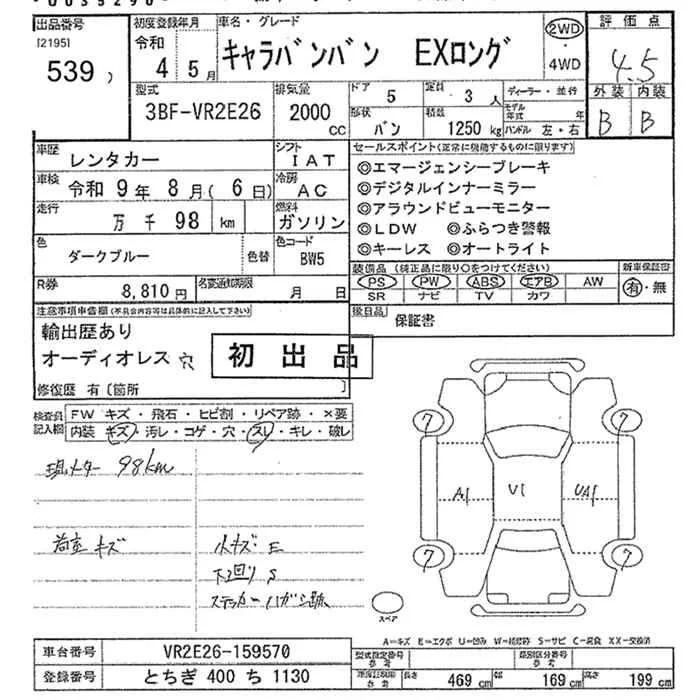 出品番号 初度登録年月 車名・グレード 評価点
[2195] 539 令和 4 5月 キャラバンバン EXロング 2WD・4WD 4.5
型式 排気量 ドア 5 定員 3人 ディーラー・並行 外装 内装
3BF-VR2E26 2000cc 形状 バン 積載 1250kg モデル年式 年 ハンドル 左・右 B B
車歴 レンタカー シフト IAT セールスポイント(正常に機能するものに限ります)
車検 令和 9年 8月(6日) 冷房 AC ◎エマージェンシーブレーキ
◎デジタルインナーミラー
走行 万 千 98 km 燃料 ガソリン ◎アラウンドビューモニター
◎LDW ◎ふらつき警報
色 ダークブルー 色替 色コード BW5 ◎キーレス ◎オートライト
装備品(純正品に限り○をつけてください) 新車保証書
R券 8,810円 名変通知期限 月 日 PS PW ABS エアB AW 有・無
SR ナビ TV カワ
注意事項申告欄(不具合内容等は具体的に記入して下さい) 後日品 保証書
輸出歴あり
オーディオレス 穴 初出品
修復歴 有〔箇所 〕
検査員記入欄 FW キズ・飛石・ヒビ割・リペア跡・×要
内装 キズ・汚レ・コゲ・穴・スレ・キレ・破レ
現メーター 98km
荷室 キズ 小キズ E
下回り S
ステッカーハガシ跡
7 7
A1 V1 UA1
7 7
スペア
A=キズ E=エクボ U=凹み W=補修跡 S=サビ C=腐食 XX=交換済
車台番号 VR2E26-159570 型式指定番号 参考 類別区分番号 参考
登録番号 とちぎ 400 ち 1130 参考 長さ 469cm 幅 169cm 高さ 199cm